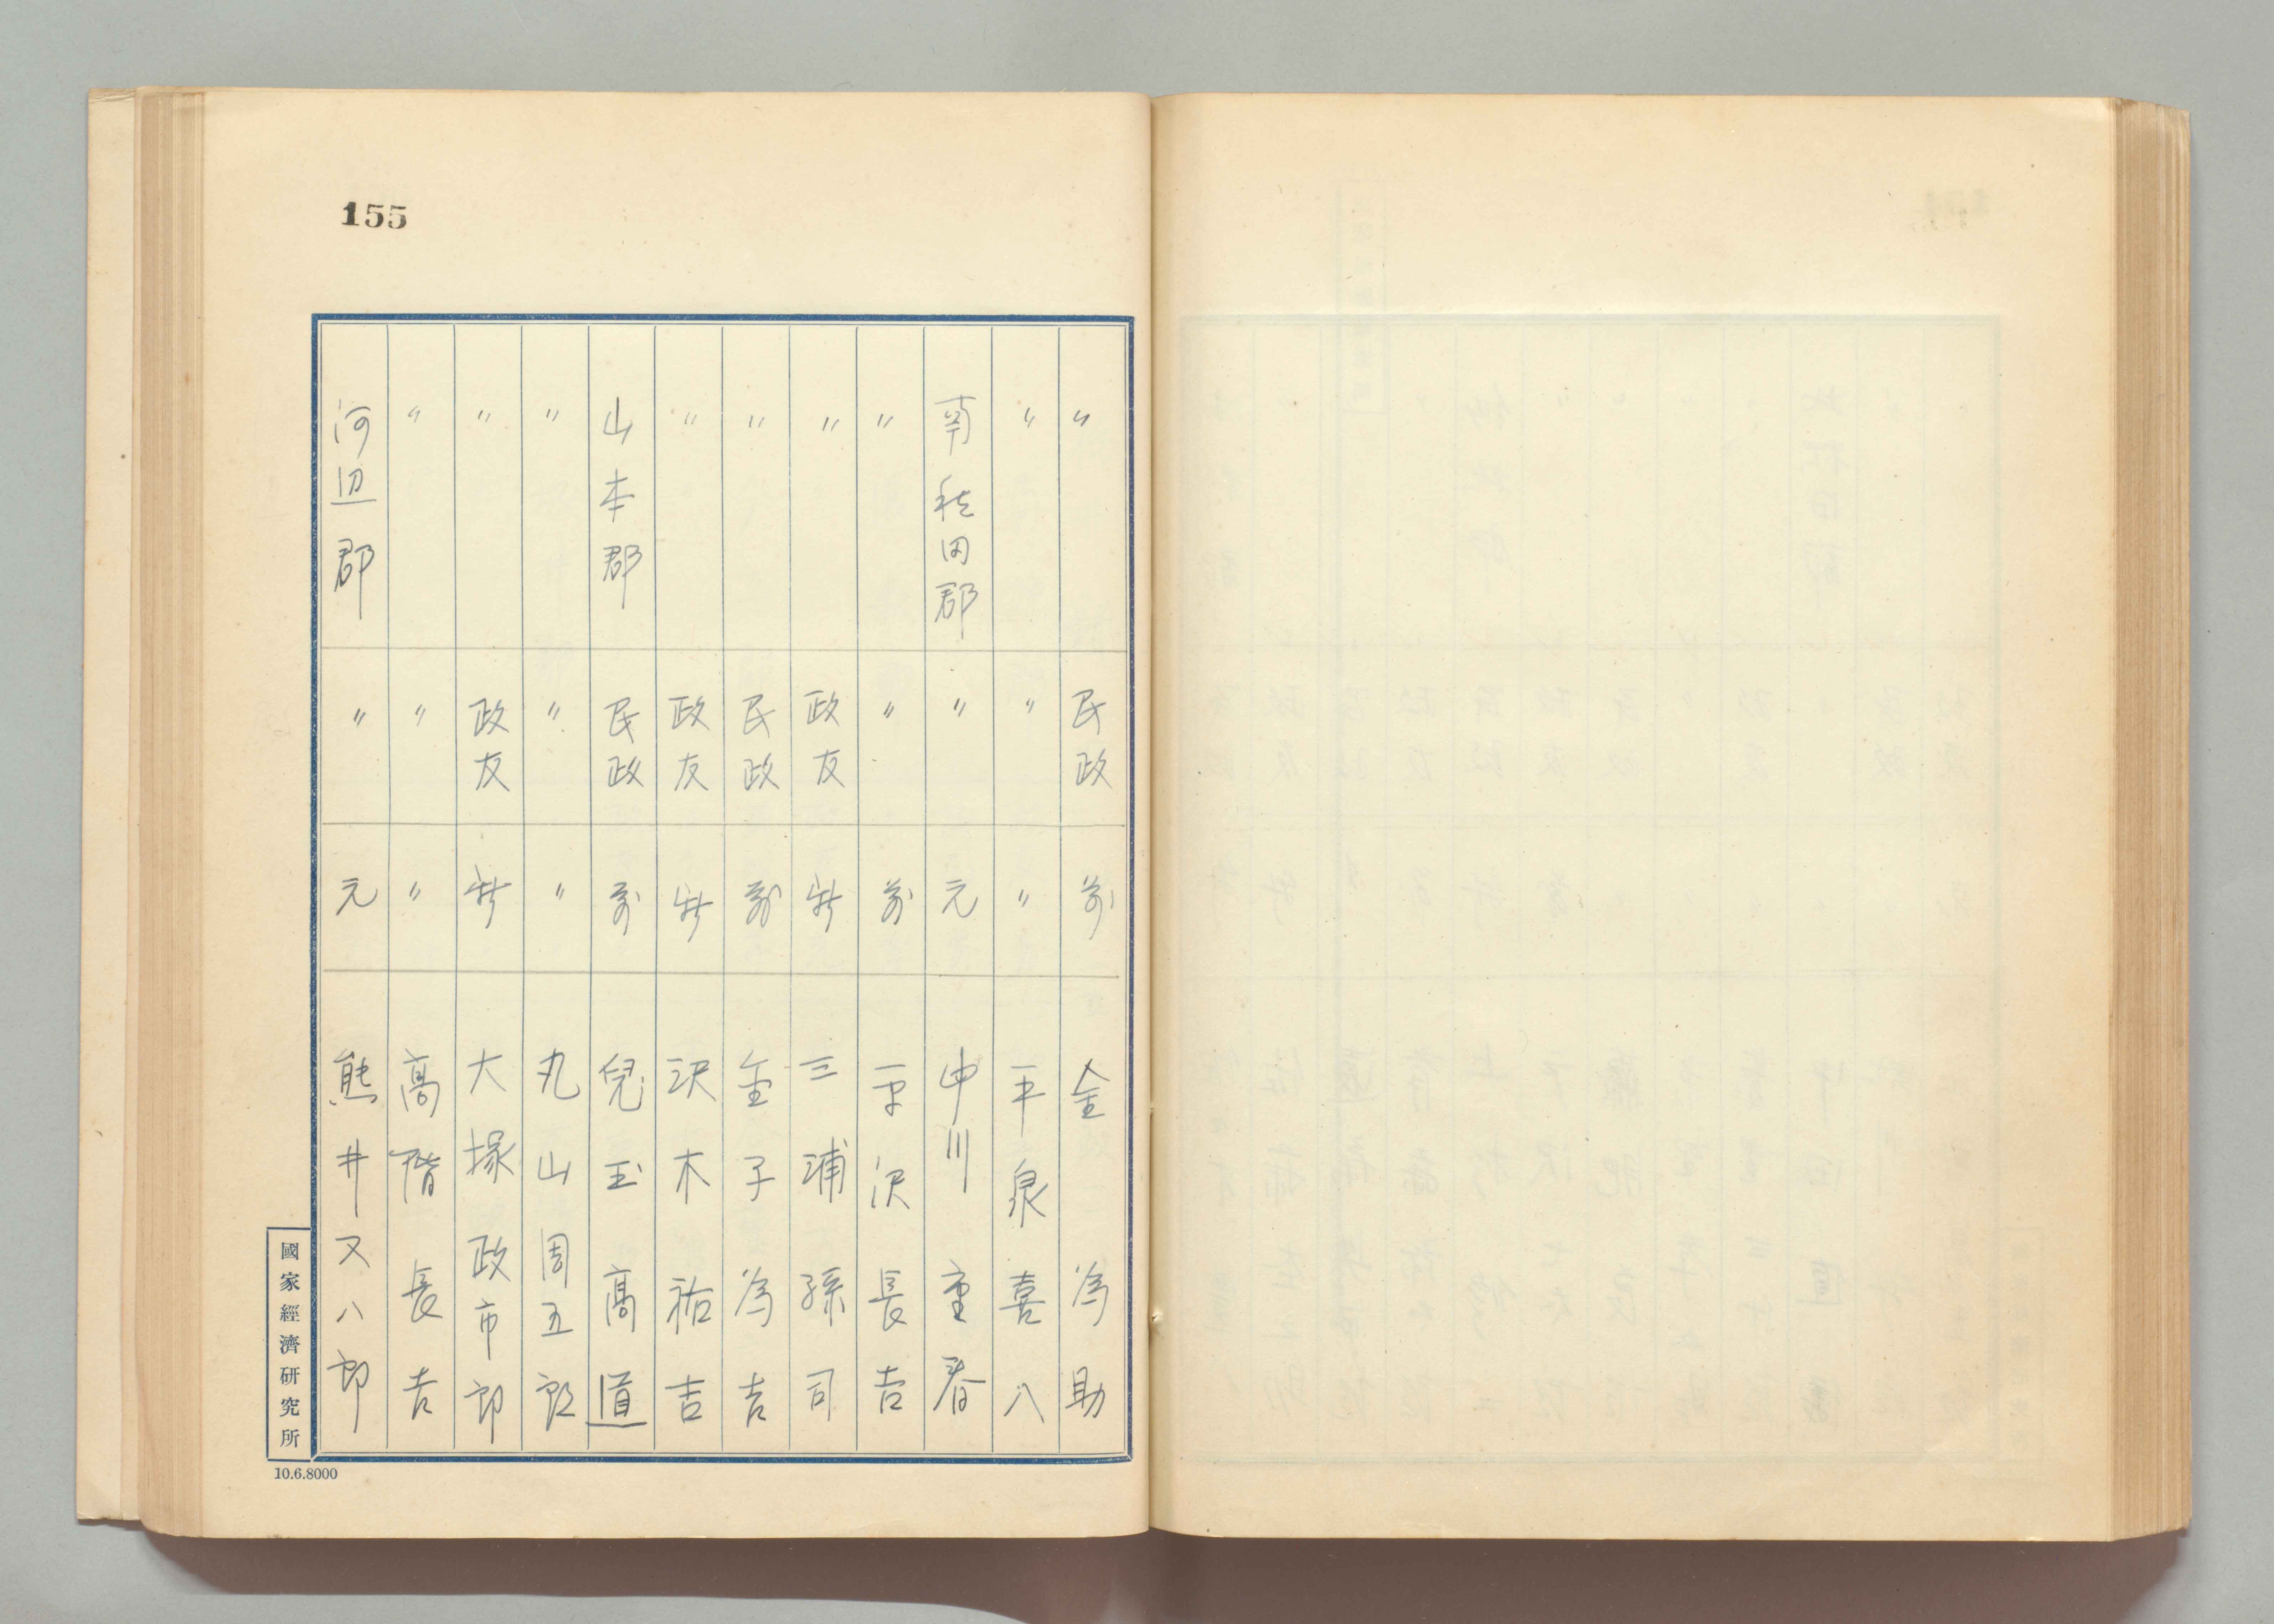 155
〃 民政 前 金為助
〃 〃 〃 平泉喜八
南秋田郡 〃 元 中川重春
〃 〃 前 平沢長吉
〃 政友 新 三浦孫司
〃 民政 前 金子為吉
〃 政友 新 沢木祐吉
山本郡 民政 前 兒玉高道
〃 〃 〃 丸山周五郎
〃 政友 新 大塚政市郎
〃 〃 〃 高階長吉
河辺郡 〃 元 熊井又八郎
國家經濟研究所
10.6.8000